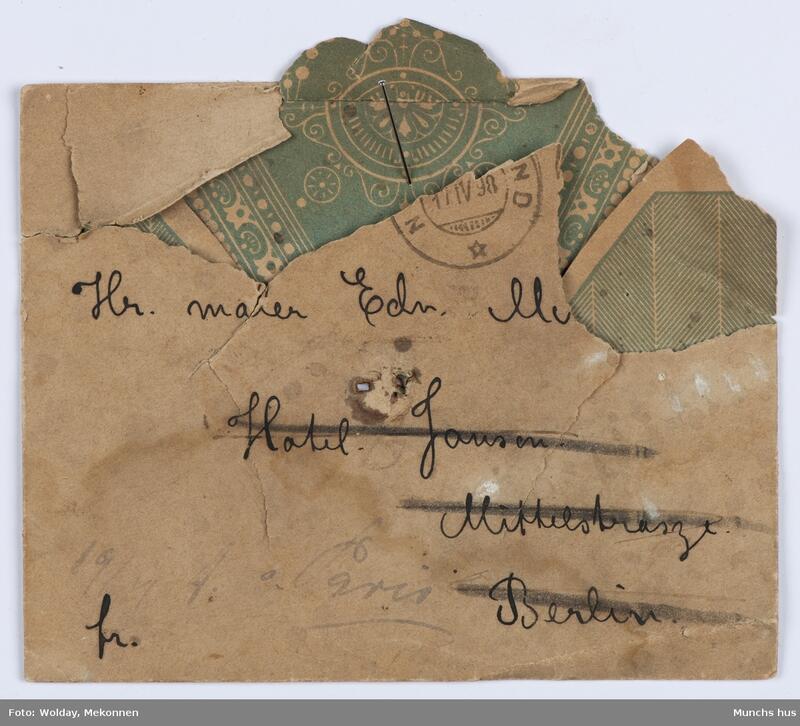 17 IV 98
N ND
Hr. maler Edv. Mu
Hotel Jansen.
Mittelstrasze.
Berlin.
Paris
fr.
Foto: Wolday, Mekonnen
Munchs hus